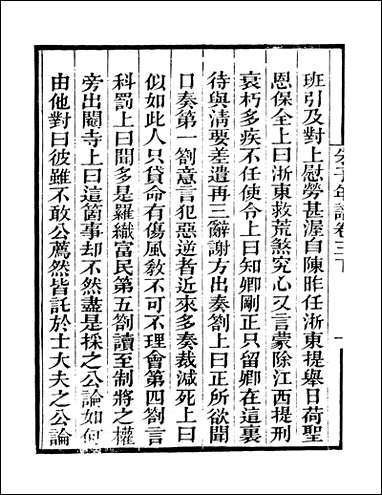 朱子年譜卷三下
一
班引及對上慰勞甚渥自陳昨任浙東提舉日荷聖
恩保全上曰浙東救荒煞究心又言蒙除江西提刑
衰朽多疾不任使令上曰知卿剛正只留卿在這裏
待與淸要差遣再三辭謝方出奏劄上曰正所欲聞
口奏第一劄意言犯惡逆者近來多奏裁減死上曰
似如此人只貸命有傷風敎不可不理會第四劄言
科罰上曰聞多是羅織富民第五劄讀至制將之權
旁出閹寺上曰這箇事却不然盡是採之公論如何
由他對曰彼雖不敢公薦然皆託於士大夫之公論